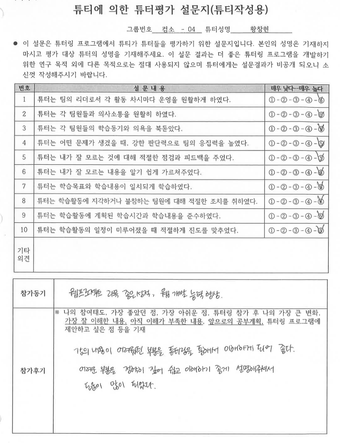 튜티에 의한 튜터평가 설문지(튜티작성용)
그룹번호 컴소 - 04 튜터성명 황창현
● 이 설문은 튜터링 프로그램에서 튜티가 튜터들을 평가하기 위한 설문지입니다. 본인의 성명은 기재하지
마시고 평가 대상 튜터의 성명을 기재해주세요. 이 설문 결과는 더 좋은 튜터링 프로그램을 개발하기
위한 연구 목적 외에 다른 목적으로는 절대 사용되지 않으며 튜터에게는 설문결과가 비공개 되오니 소
신껏 작성해주시기 바랍니다.
번호 설 문 내 용 매우 낮다---매우 높다
1 튜터는 팀의 리더로서 각 활동 차시마다 운영을 원활하게 하였다. ①-②-③-④-⑤
2 튜터는 각 팀원들과 의사소통을 원활히 하였다. ①-②-③-④-⑤
3 튜터는 각 팀원들의 학습동기와 의욕을 북돋았다. ①-②-③-④-⑤
4 튜터는 어떤 문제가 생겼을 때, 강한 판단력으로 팀의 응집력을 높였다. ①-②-③-④-⑤
5 튜터는 내가 잘 모르는 것에 대해 적절한 점검과 피드백을 주었다. ①-②-③-④-⑤
6 튜터는 내가 잘 모르는 내용을 알기 쉽게 가르쳐주었다. ①-②-③-④-⑤
7 튜터는 학습목표와 학습내용이 일치되게 학습하였다. ①-②-③-④-⑤
8 튜터는 학습활동에 지각하거나 불참하는 팀원에 대해 적절한 조치를 취하였다. ①-②-③-④-⑤
9 튜터는 학습활동에 계획된 학습시간과 학습내용을 준수하였다. ①-②-③-④-⑤
10 튜터는 학습활동의 일정이 미루어졌을 때 적절하게 진도를 맞추었다. ①-②-③-④-⑤
기타
의견
참가동기
능력 향상
참가후기
※ 나의 참여태도, 가장 좋았던 점, 가장 아쉬운 점, 튜터링 참가 후 나의 가장 큰 변화,
가장 잘 이해한 내용, 아직 이해가 부족한 내용, 앞으로의 공부계획, 튜터링 프로그램에
제안하고 싶은 점 등을 기재
강의 내용이 어려웠던 부분을 튜터링을 통해서 이해하게 되어 좋다.
어려운 부분을 쉽고 이해하기 좋게 설명해주셔서
도움이 많이 되었다.